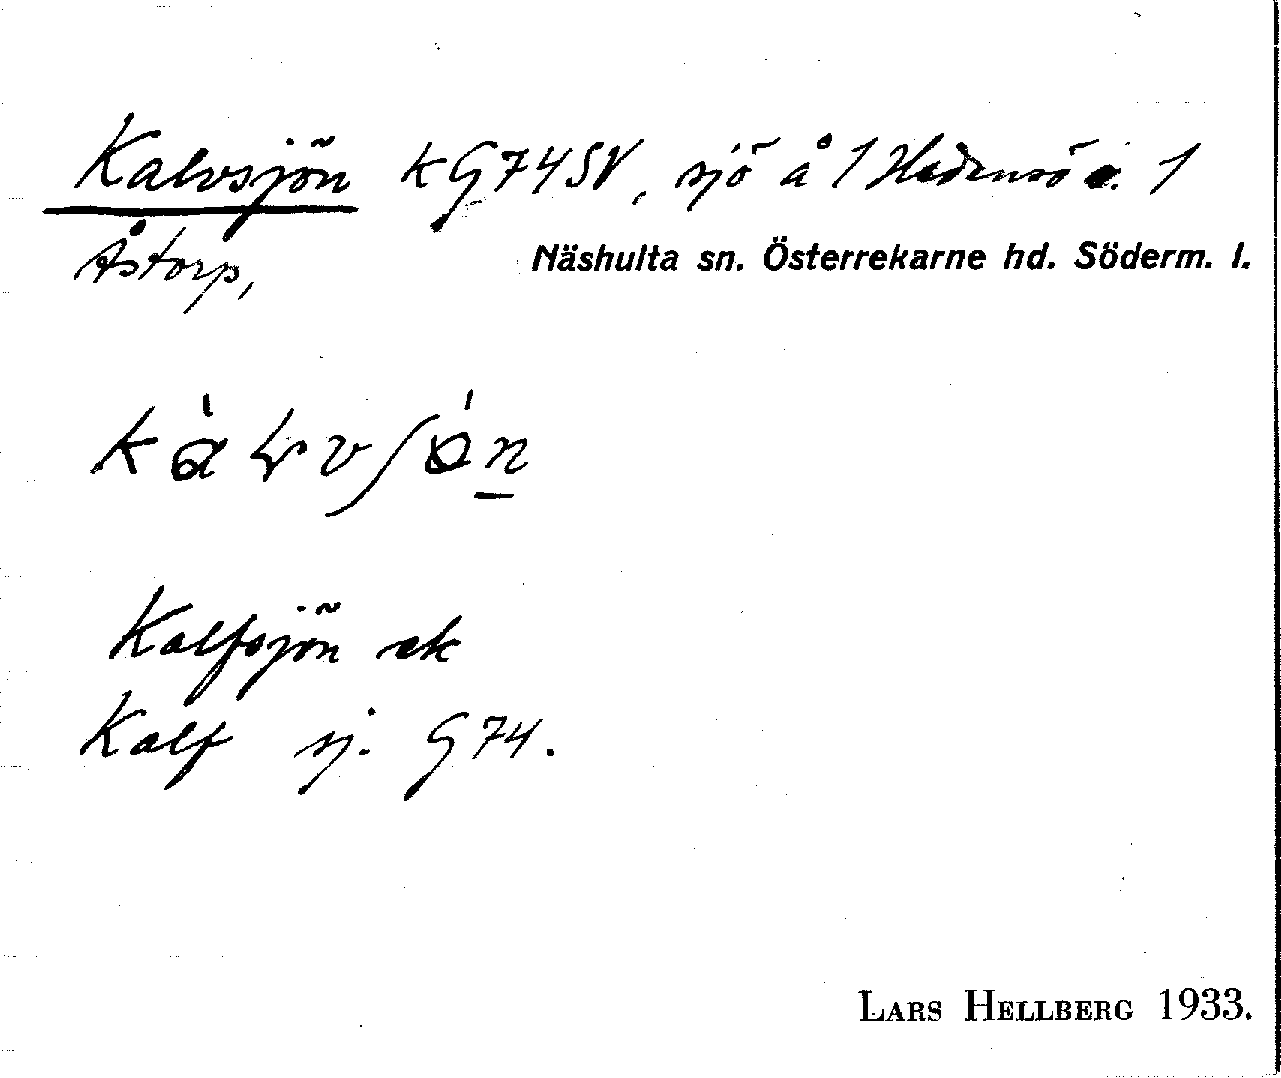 Kalvsjön k G74SV, sjö å 1 Hedensö o. 1
Åstorp,
Näshulta sn. Österrekarne hd. Söderm. l.
Kalfsjön ek
Kalf sj. G74.
LARS HELLBERG 1933.